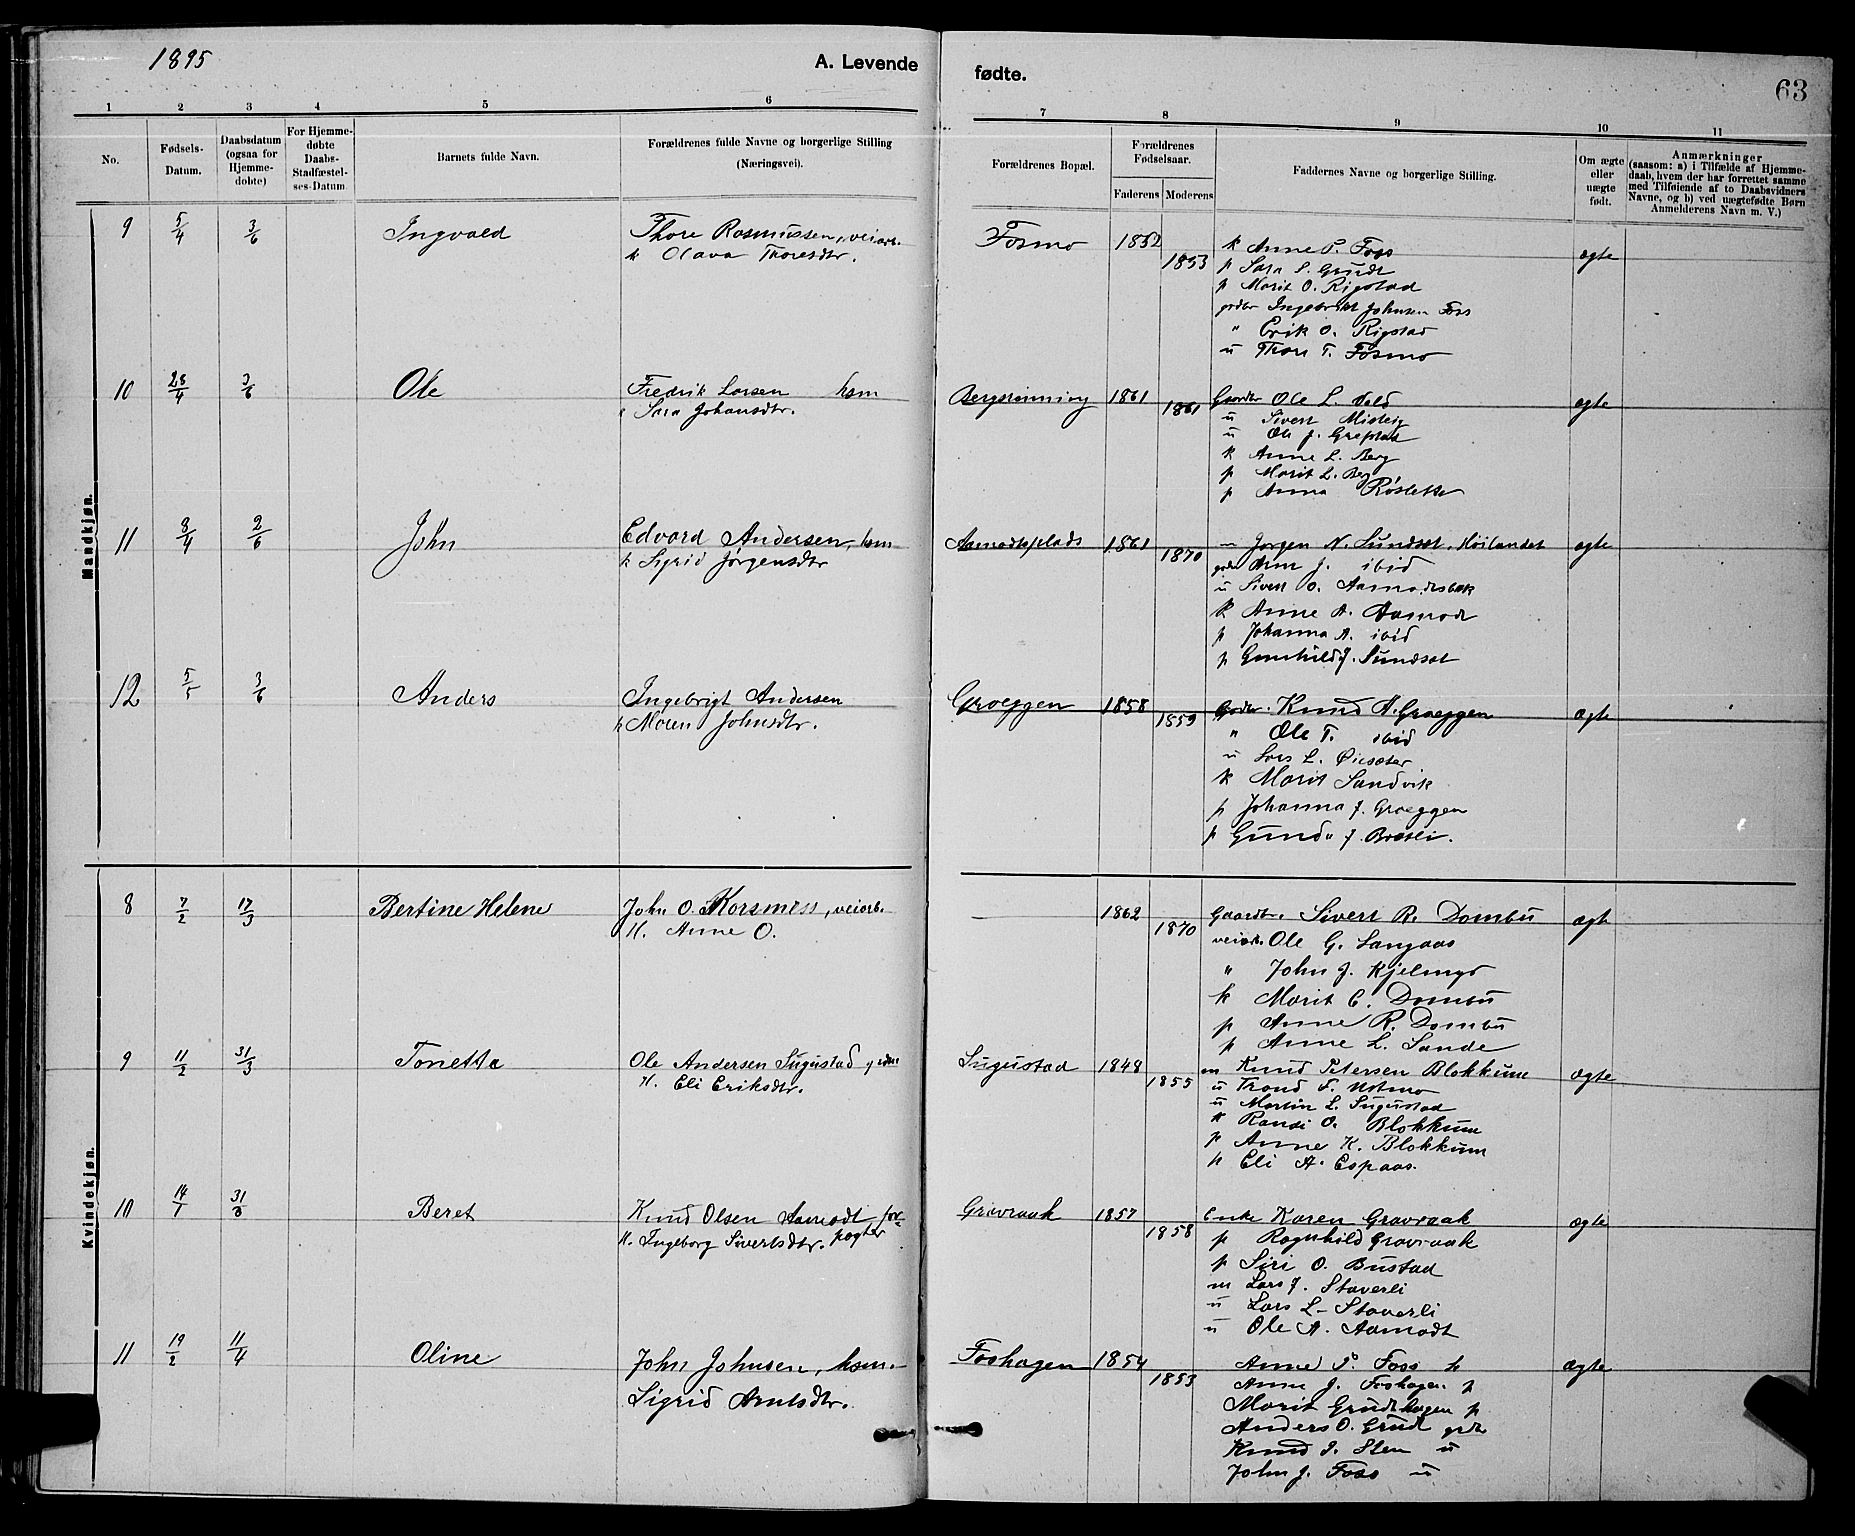 1895
A. Levende
fødte.
63
1 2 3 4 5 6 7 8 9 10 11
No.
Fødsels-Datum.
Daabsdatum (ogsaa for Hjemme-dobte)
For Hjemme-døbte Daabs-Stadfæstel-ses-Datum
Barnets fulde Navn.
Forældrenes fulde Navne og borgerlige Stilling (Næringsvei).
Forældrenes Bopæl.
Forældrenes Fødselsaar.
Faderens Moderens
Faddernes Navne og borgerlige Stilling.
Om ægte eller uægte født.
Anmærkninger (saasom: a) i Tilfælde af Hjemme-daab, hvem der har forrettet samme med Tilføiende af to Daabsvidners Navne, og b) ved uægtefødte Børn Anmelderens Navn m. V.)
Mandkjøn.
9 5/4 3/6 Ingvald Thore Rasmussen, veiarb. Fosmo 1852 k Anne P. Foss ægte
k Olava Thoresdtr. 1853 p Sara S. Grudt
p Marit O. Rigstad
grdbr Ingebrikt Johnsen Foss
" Erik O. Rigstad
u Thore T. Fosmo
10 28/4 3/6 Ole Fredrik Larsen hsm Bergsrønning 1861 1861 Gaardbr Ole L. ægte
Sara Johansdtr. u Sivert
u Ole J. Grefstad
k Anne L. Berg
p Marit L. Berg
p Anna Røslette
11 8/4 2/6 John Edvard Andersen, hsm Aamodtsplads 1861 1870 Jørgen N. Sundset, Høilandet ægte
k Sigrid Jørgensdtr J. ibid
u Sivert O. Aamodtsbak
k Anne A. Aamodt
p Johanna A. ibid
p Gunhild J. Sundset
12 5/5 3/6 Anders Ingebrigt Andersen Groeggen 1858 1859 grdbr. Knud A. Groeggen ægte
k Maren Johnsdtr. " Ole T. ibid
u Lars L. Øiesæter
k Marit Sandvik
p Johanna J. Groeggen
p Gunda J. Brøsli.
Kvindekjøn.
8 7/2 17/3 Bertine Helene John O. Korsmess, veiarb. — 1862 1870 Gaardbr. Sivert R. Dombu ægte
H. Anne O. veiarb. Ole G. Langaas
" John J. Kjelmyr
k Marit E. Dombu
p Anne R. Dombu
p Anne L. Sande
9 11/2 31/3 Tonetta Ole Andersen Sugustad grdm Sugustad 1848 1855 m Knud Petersen Blokkum ægte
H. Eli Eriksdtr. u Trond F.
u Martin L. Sugustad
k Randi O. Blokkum
p Anne K. Blokkum
p Eli A. Espaas.
10 14/1 31/3 Beret Knud Olsen Aamodt for- Gravraak 1857 1858 Enke Karen Gravraak ægte
H. Ingeborg Sivertsdtr. pagter p Ragnhild Gravraak
p Siri O. Bustad
m Lars J. Staverli
u Lars L. Staverli
u Ole A. Aamodt
11 19/2 11/4 Oline John Johnsen, hsm. Foshagen 1854 1853 Anne P. Foss k ægte
Sigrid Arntsdtr. Anne J. Foshagen p
Marit Grudthagen p
Anders O. Grudt grdbr
Knud J. Sten u
John J. Foss u